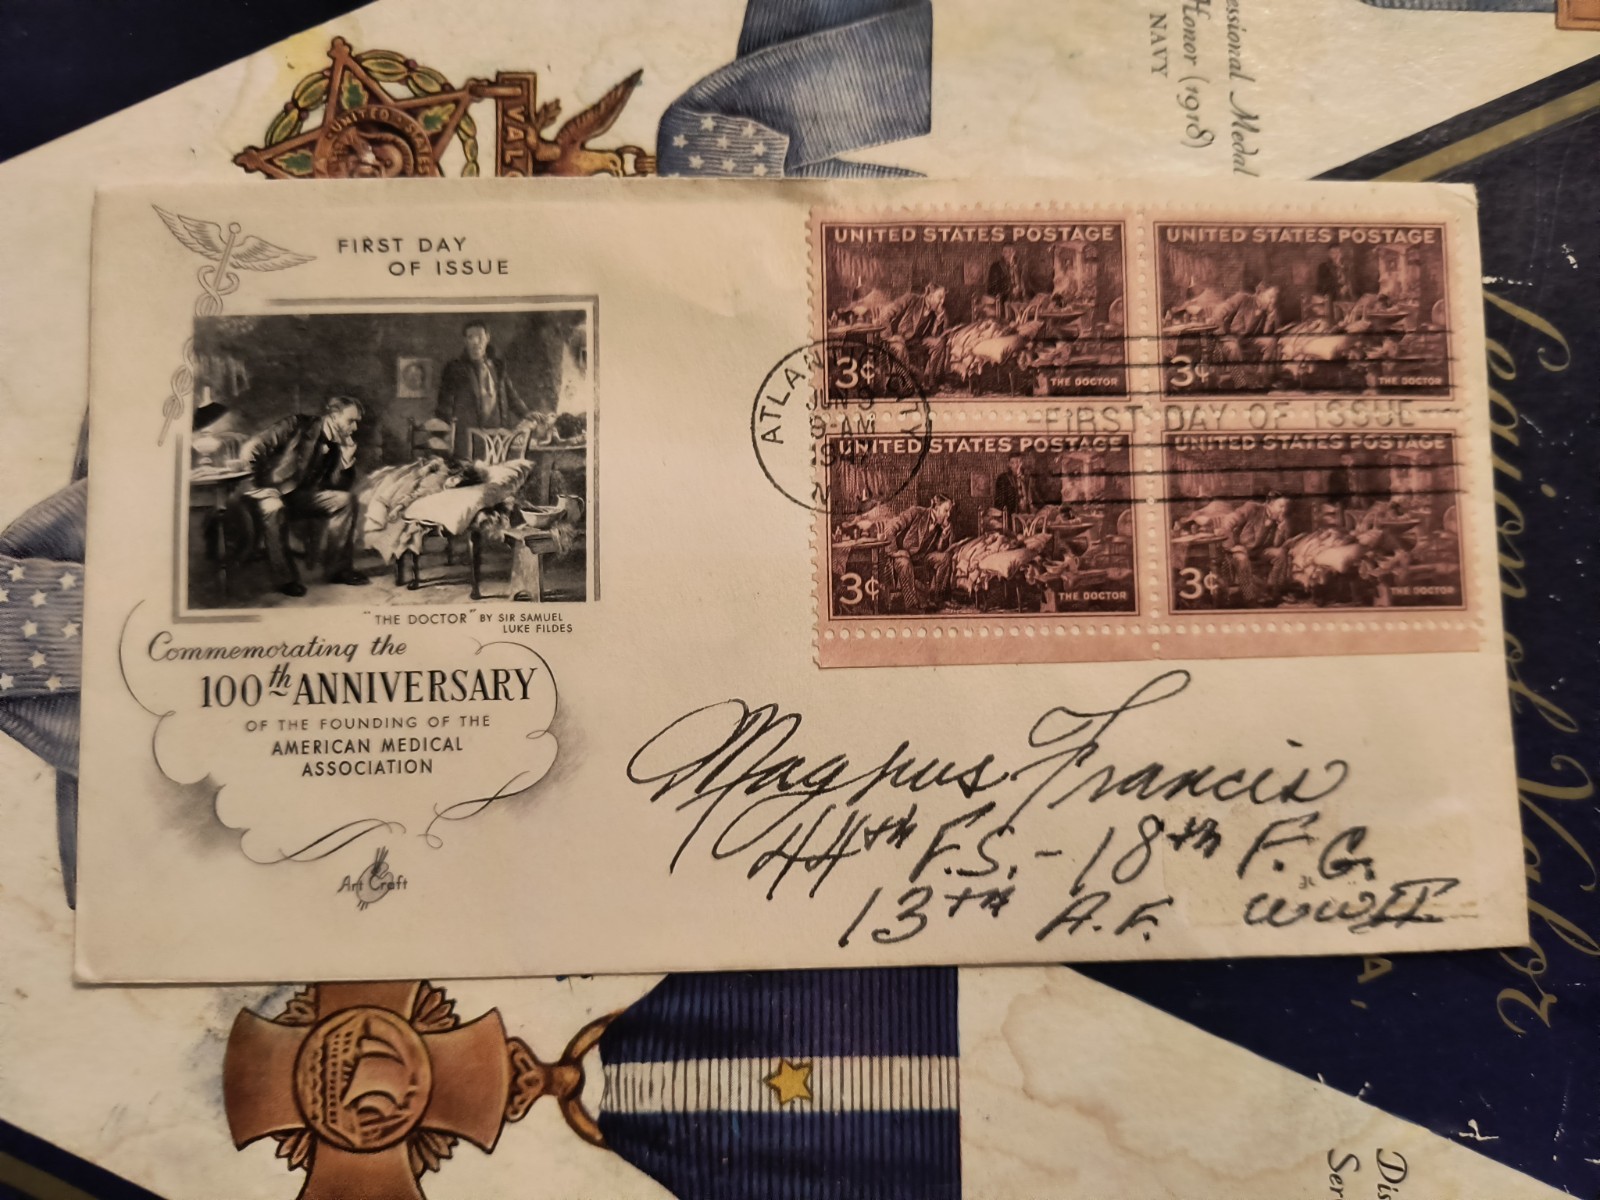 UNITED STATES
VALO
essional Medal
Honor (1918)
NAVY
FIRST DAY
OF ISSUE
"THE DOCTOR" BY SIR SAMUEL
LUKE FILDES
Commemorating the
100th ANNIVERSARY
OF THE FOUNDING OF THE
AMERICAN MEDICAL
ASSOCIATION
Art Craft
UNITED STATES POSTAGE
3¢
THE DOCTOR
UNITED STATES POSTAGE
3¢
THE DOCTOR
UNITED STATES POSTAGE
3¢
THE DOCTOR
UNITED STATES POSTAGE
3¢
THE DOCTOR
ATLANTIC CITY
JUN 9
9-AM
FIRST DAY OF ISSUE
Magnus Francis
44th F.S. - 18th F. G.
13TH A.F. WWII
A,
Dis
Ser